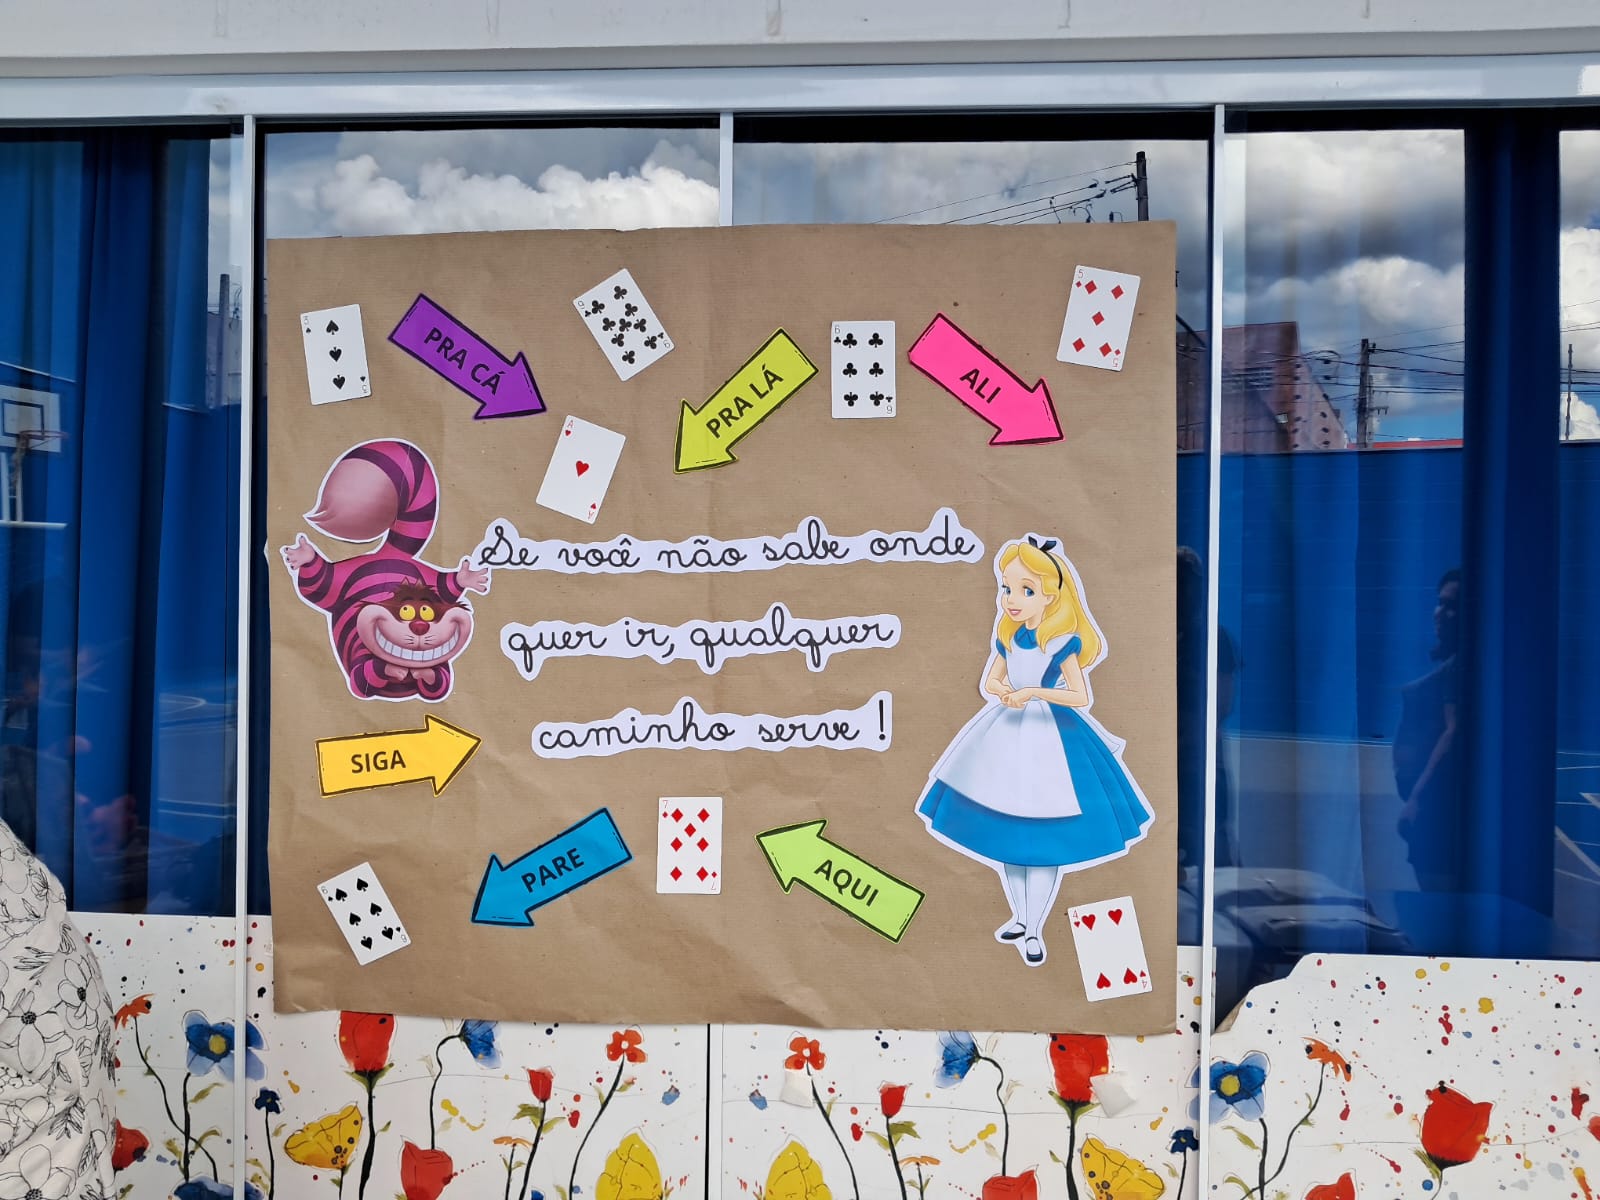 PRA CÁ
PRA LÁ
ALI
Se você não sabe onde
quer ir, qualquer
caminho serve!
SIGA
PARE
AQUI
3
3
9
9
6
6
5
5
A
A
7
7
6
4
4